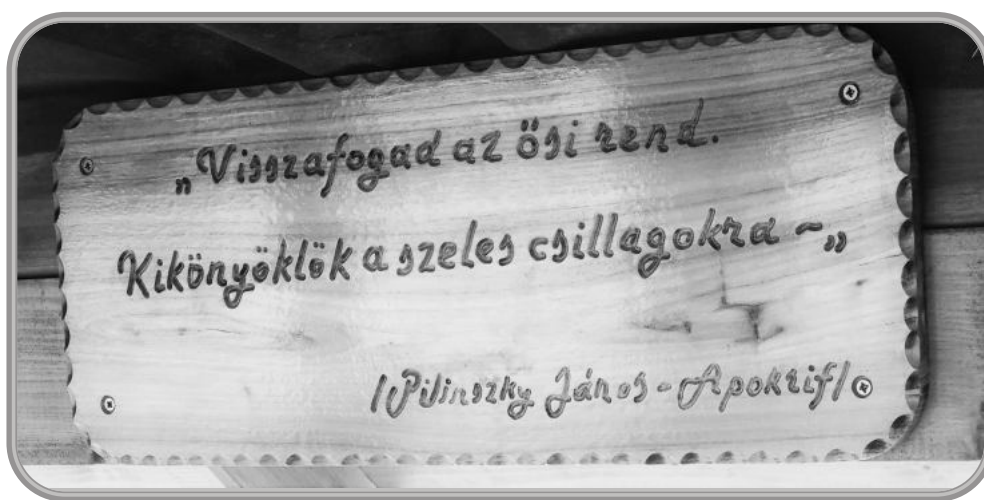 „Visszafogad az ősi rend.
Kikönyöklök a szeles csillagokra ~„
/Pilinszky János - Apokrif/